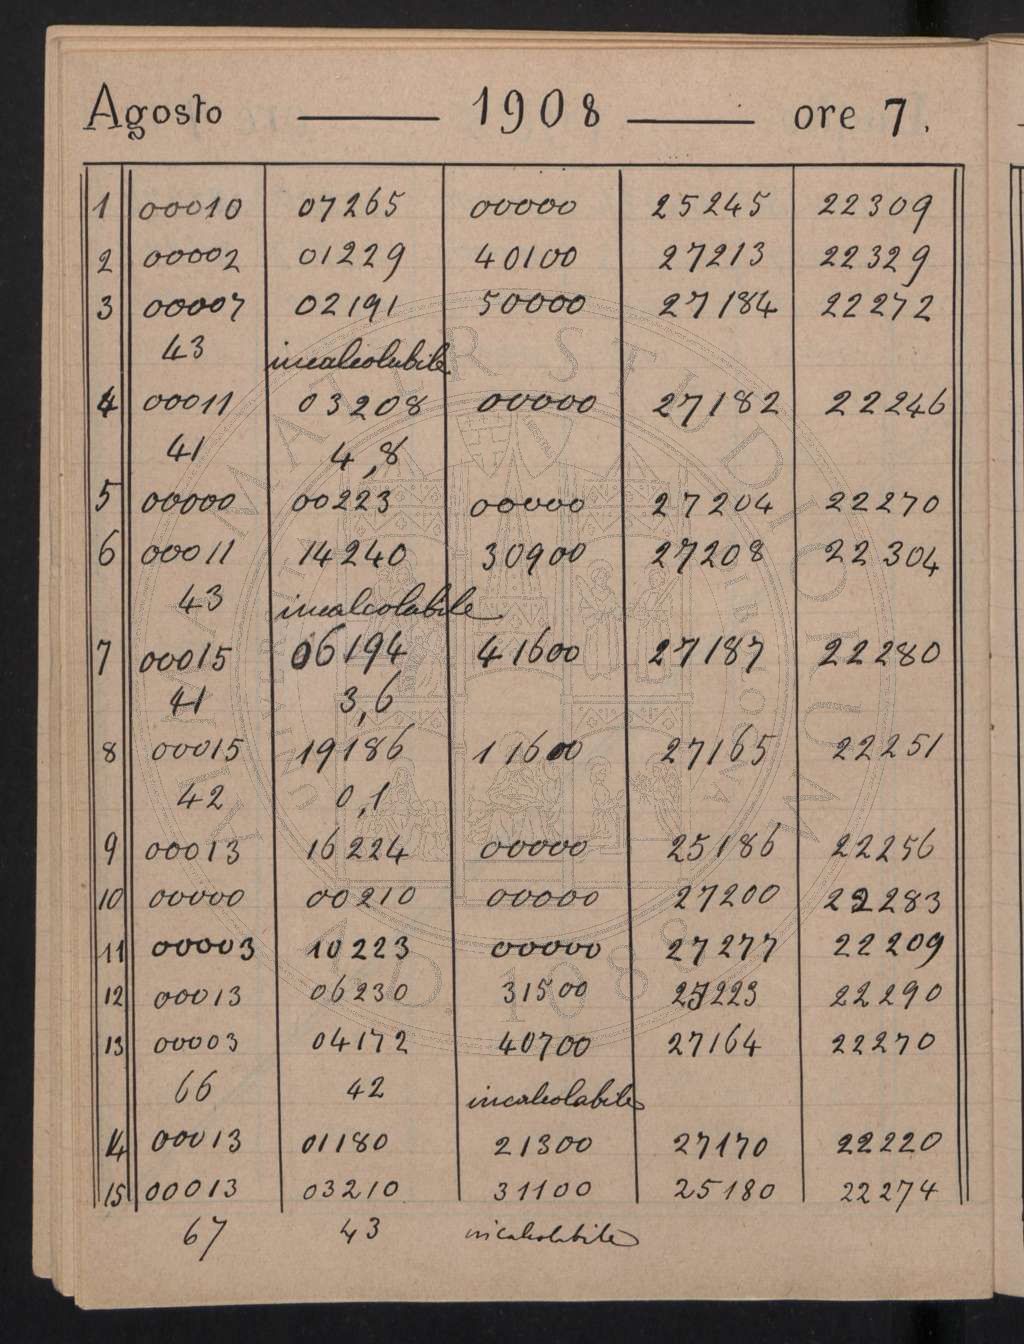 Agosto — 1908 — ore 7.
1 00010 07265 00000 25245 22309
2 00002 01229 40100 27213 22329
3 00007 02191 50000 27184 22272
43 incalcolabile
4 00011 03208 00000 27182 22246
41 4,8
5 00000 00223 00000 27204 22270
6 00011 14240 30900 27208 22304
43 incalcolabile
7 00015 06194 41600 27187 22280
41 3,6
8 00015 19186 11600 27165 22251
42 0,1
9 00013 16224 00000 25186 22256
10 00000 00210 00000 27200 22283
11 00003 10223 00000 27277 22209
12 00013 06230 31500 27223 22290
13 00003 04172 40700 27164 22270
66 42 incalcolabile
14 00013 01180 21300 27170 22220
15 00013 03210 31100 25180 22274
67 43 incalcolabile
ALMA MATER STUDIORUM
A.D. 1088